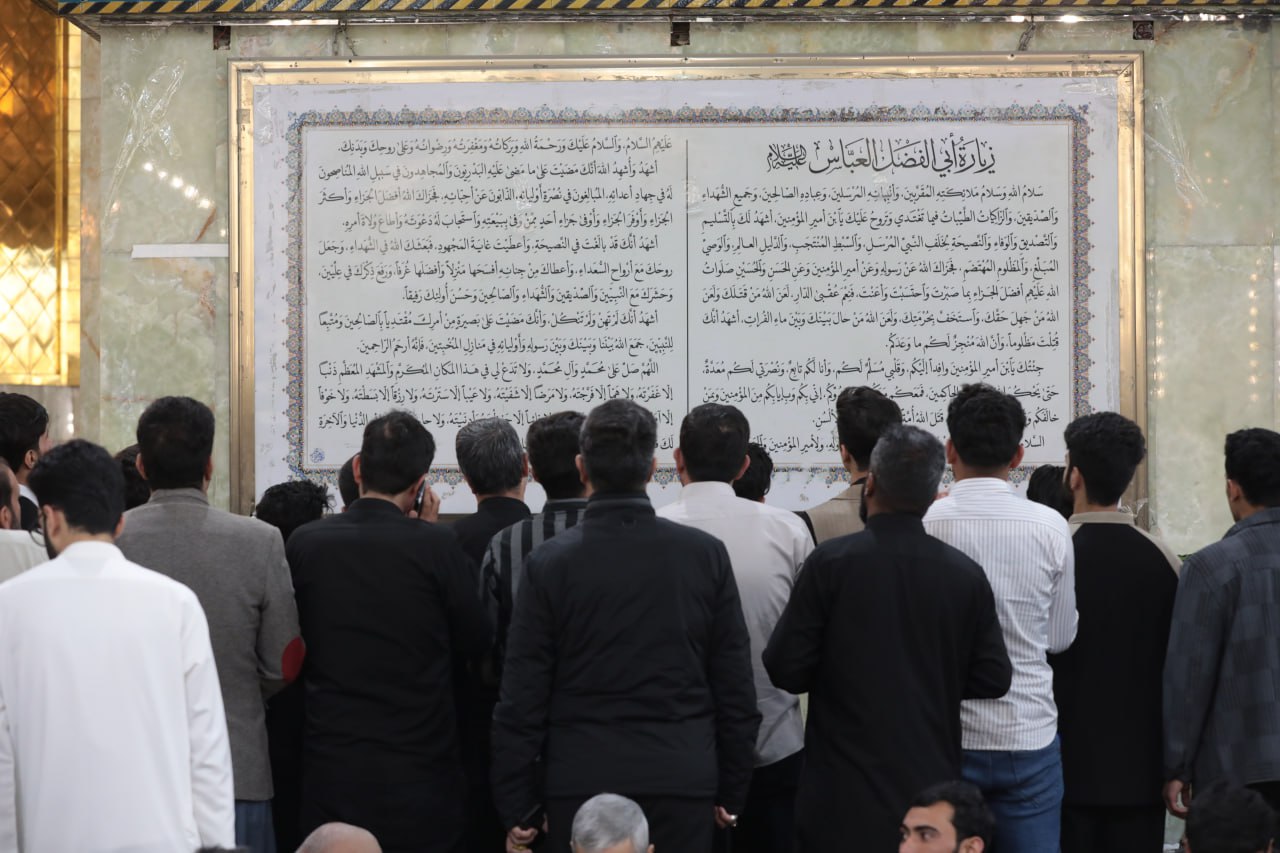 زيارة أبي الفضل العباس عليه السلام
سَلامُ اللهِ وَسَلامُ مَلائِكَتِهِ المُقَرَّبينَ، وَأَنْبِيائِهِ المُرْسَلينَ، وَعِبادِهِ الصّالِحينَ، وَجَميعِ الشُّهَداءِ
وَالصِّدّيقينَ، وَالزّاكِياتُ الطَّيِّباتُ فيما تَغْتَدي وَتَروحُ عَلَيْكَ يَا ابْنَ أَميرِ المُؤْمِنينَ، أَشْهَدُ لَكَ بِالتَّسْليمِ
وَالتَّصْديقِ وَالوَفاءِ وَالنَّصيحَةِ لِخَلَفِ النَّبِيِّ المُرْسَلِ، وَالسِّبْطِ المُنْتَجَبِ، وَالدَّليلِ العالِمِ، وَالوَصِيِّ
المُبَلِّغِ، وَالمَظْلومِ المُهْتَضَمِ، فَجَزاكَ اللهُ عَنْ رَسولِهِ وَعَنْ أَميرِ المُؤْمِنينَ وَعَنِ الحَسَنِ وَالحُسَيْنِ صَلَواتُ
اللهِ عَلَيْهِم أَفْضَلَ الجَزاءِ بِما صَبَرْتَ وَاحْتَسَبْتَ وَأَعَنْتَ، فَنِعْمَ عُقْبَى الدّارِ، لَعَنَ اللهُ مَنْ قَتَلَكَ وَلَعَنَ
اللهُ مَنْ جَهِلَ حَقَّكَ، وَاسْتَخَفَّ بِحُرْمَتِكَ، وَلَعَنَ اللهُ مَنْ حالَ بَيْنَكَ وَبَيْنَ ماءِ الفُراتِ، أَشْهَدُ أَنَّكَ
قُتِلْتَ مَظْلوماً، وَأَنَّ اللهَ مُنْجِزٌ لَكُم ما وَعَدَكُم.
جِئْتُكَ يَا ابْنَ أَميرِ المُؤْمِنينَ وافِداً إِلَيْكُم، وَقَلْبي مُسَلِّمٌ لَكُم، وَأَنا لَكُم تابِعٌ، وَنُصْرَتي لَكُم مُعَدَّةٌ،
حَتّى يَحْكُمَ اللهُ الحاكِمينَ، فَمَعَكُم إِنّي بِكُم وَبِإِيابِكُم مِنَ المُؤْمِنينَ وَبِمَنْ
خالَفَكُم قَتَلَ اللهُ أُمَّةً
السَّلامُ وَلِأَميرِ المُؤْمِنينَ
عَلَيْهِمُ السَّلامُ، وَالسَّلامُ عَلَيْكَ وَرَحْمَةُ اللهِ وَبَرَكاتُهُ وَمَغْفِرَتُهُ وَرِضْوانُهُ وَعَلى روحِكَ وَبَدَنِكَ.
أَشْهَدُ وَأُشْهِدُ اللهَ أَنَّكَ مَضَيْتَ عَلى ما مَضى عَلَيْهِ البَدْرِيّونَ وَالمُجاهِدونَ في سَبيلِ اللهِ المُناصِحونَ
لَهُ في جِهادِ أَعْدائِهِ، المُبالِغونَ في نُصْرَةِ أَوْلِيائِهِ، الذّابّونَ عَنْ أَحِبّائِهِ، فَجَزاكَ اللهُ أَفْضَلَ الجَزاءِ وَأَكْثَرَ
الجَزاءِ وَأَوْفَرَ الجَزاءِ وَأَوْفى جَزاءِ أَحَدٍ مِمَّنْ وَفى بِبَيْعَتِهِ وَاسْتَجابَ لَهُ دَعْوَتَهُ وَأَطاعَ وُلاةَ أَمْرِهِ.
أَشْهَدُ أَنَّكَ قَدْ بالَغْتَ في النَّصيحَةِ، وَأَعْطَيْتَ غايَةَ المَجْهودِ، فَبَعَثَكَ اللهُ في الشُّهَداءِ، وَجَعَلَ
روحَكَ مَعَ أَرْواحِ السُّعَداءِ، وَأَعْطاكَ مِنْ جِنانِهِ أَفْسَحَها مَنْزِلاً وَأَفْضَلَها غُرَفاً، وَرَفَعَ ذِكْرَكَ في عِلِّيّينَ،
وَحَشَرَكَ مَعَ النَّبِيّينَ وَالصِّدّيقينَ وَالشُّهَداءِ وَالصّالِحينَ وَحَسُنَ أُولئِكَ رَفيقاً.
أَشْهَدُ أَنَّكَ لَمْ تَهِنْ وَلَمْ تَنْكُلْ، وَأَنَّكَ مَضَيْتَ عَلى بَصيرَةٍ مِنْ أَمْرِكَ مُقْتَدِياً بِالصّالِحينَ وَمُتَّبِعاً
لِلنَّبِيّينَ، جَمَعَ اللهُ بَيْنَنا وَبَيْنَكَ وَبَيْنَ رَسولِهِ وَأَوْلِيائِهِ في مَنازِلِ المُخْبِتينَ، فَإِنَّهُ أَرْحَمُ الرّاحِمينَ.
اللّهُمَّ صَلِّ عَلى مُحَمَّدٍ وَآلِ مُحَمَّدٍ، وَلا تَدَعْ لي في هذا المَكانِ المُكَرَّمِ وَالمَشْهَدِ المُعَظَّمِ ذَنْباً
إِلّا غَفَرْتَهُ، وَلا هَمّاً إِلّا فَرَّجْتَهُ، وَلا مَرَضاً إِلّا شَفَيْتَهُ، وَلا عَيْباً إِلّا سَتَرْتَهُ، وَلا رِزْقاً إِلّا بَسَطْتَهُ، وَلا خَوْفاً
إِلّا آمَنْتَهُ وَلا الدُّنْيا وَالآخِرَةِ
لَكَ